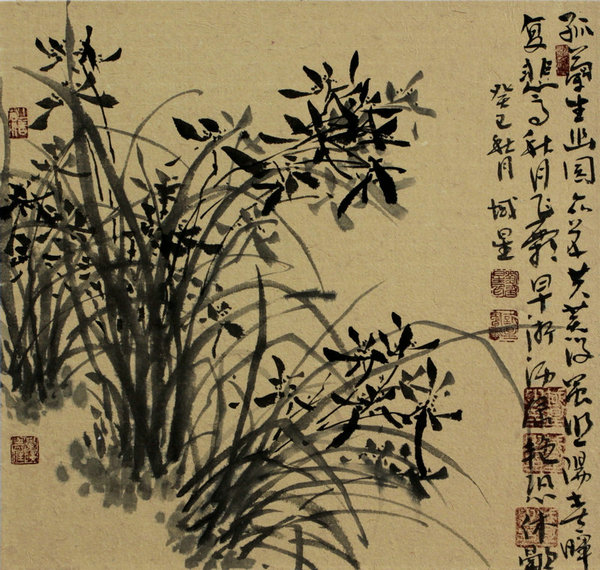 孤蘭生幽園众草共芜没虽照陽春暉
复悲高秋月飞霜早淅沥绿艳恐休歇
癸巳秋月城星